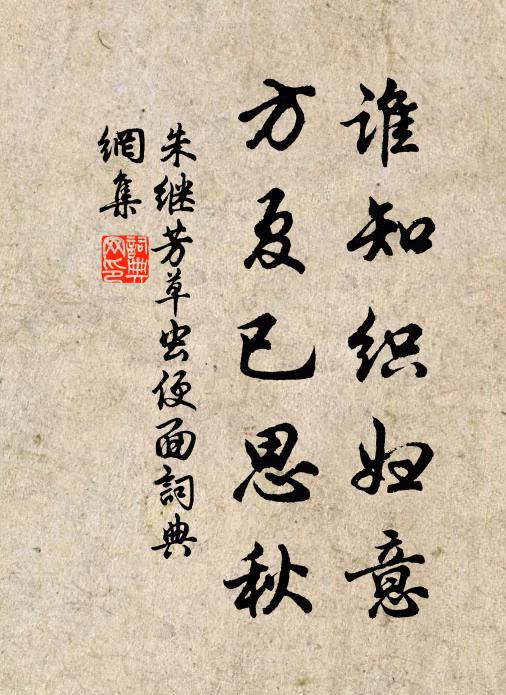 谁知织妇意
方夏已思秋
朱继芳草虫便面詞典
網集
詞典网印